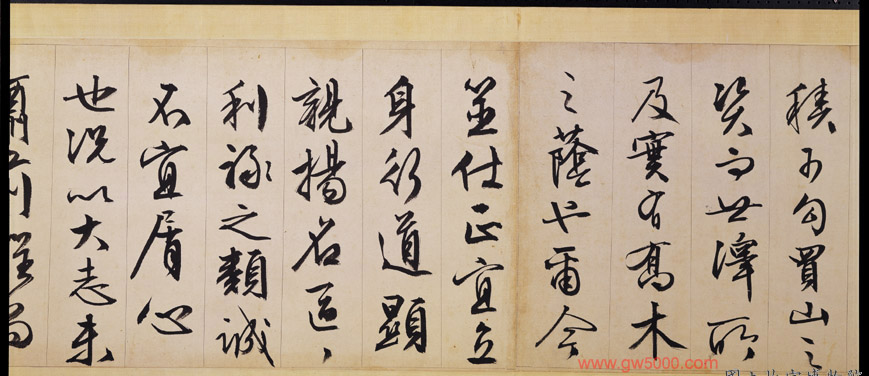 積可勾買山之
資而世澤所
及實有喬木
之蔭也爾今
筮仕正宜立
身行道顯
親揚名區〻
利祿之類誠
不宜屑心
也況以大志未
www.gw5000.com